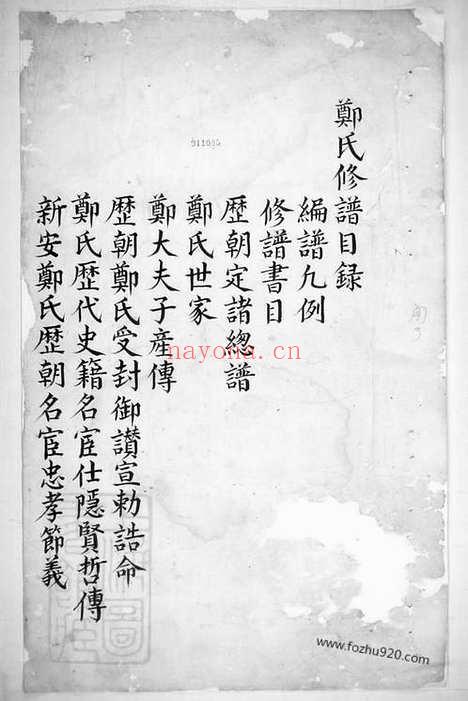 鄭氏修譜目録
編譜凢例
修譜書目
歴朝定諸緫譜
鄭氏世家
鄭大夫子産傳
歴朝鄭氏受封御讃宣勅誥命
鄭氏歴代史籍名宦仕隱賢哲傳
新安鄭氏歴朝名宦忠孝節義
911095
nayona.cn
www.fozhu920.com